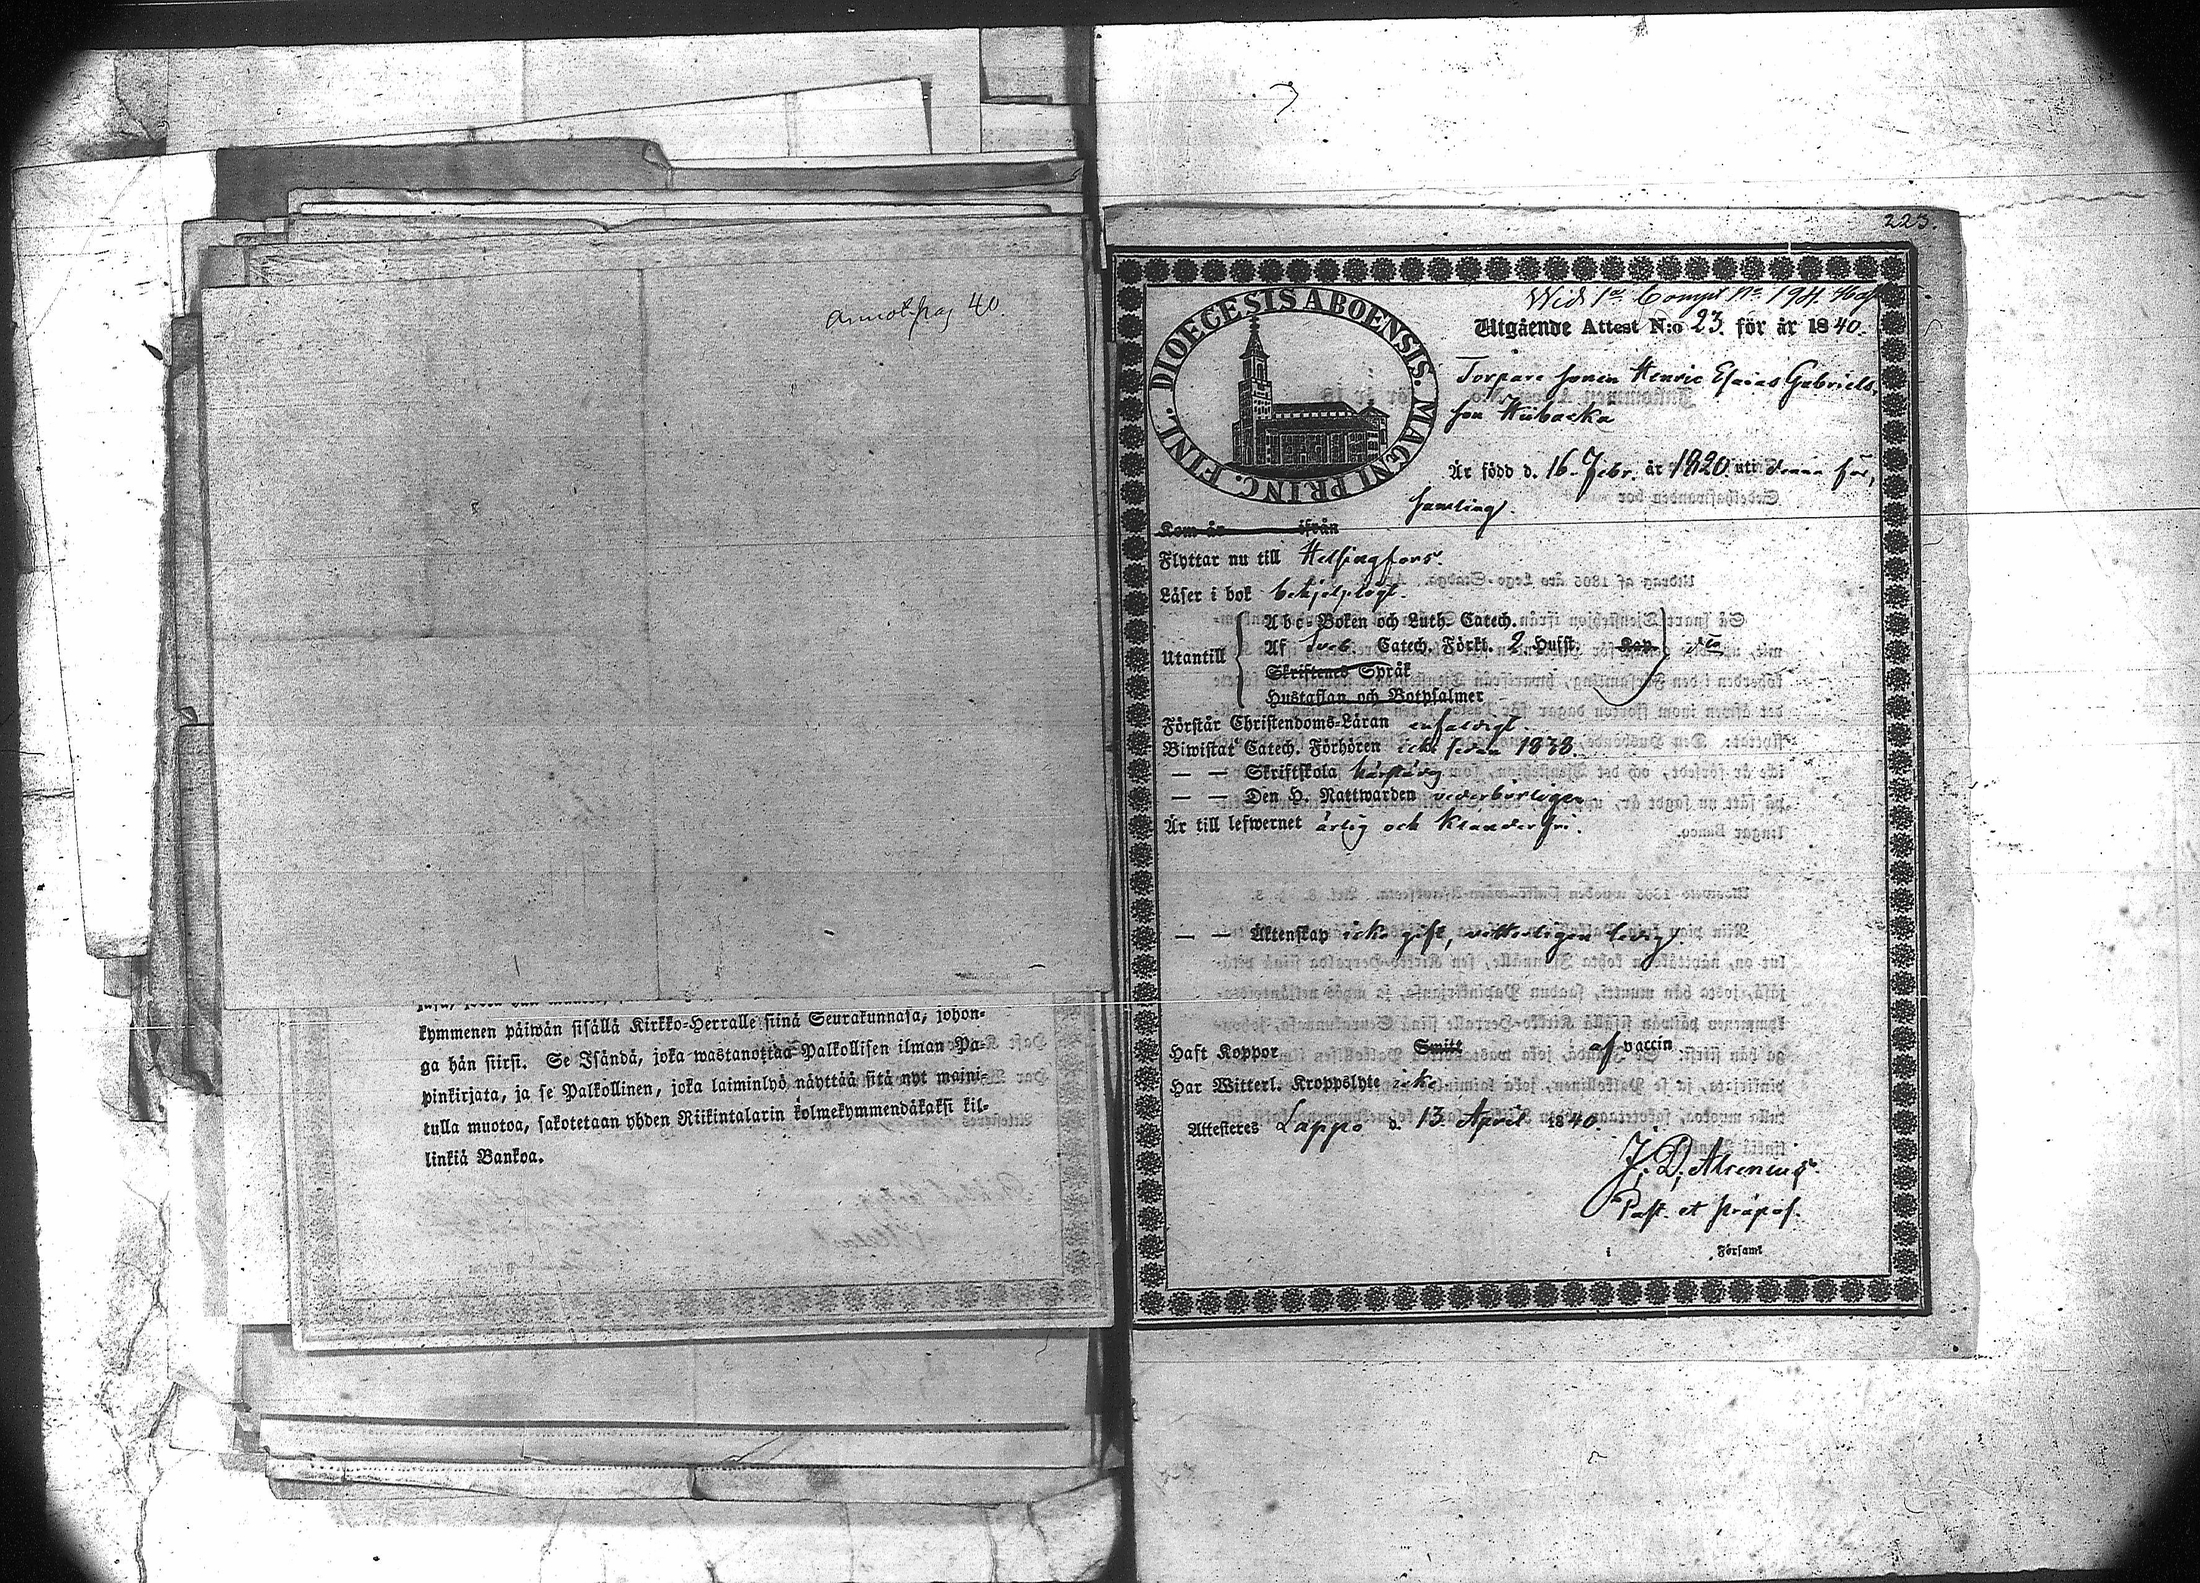 annot. pag 40.
kymmenen päiwän sisällä Kirkko-Herralle siinä Seurakunnasa, johon-
ga hän siirsi. Se Isändä, joka wastanottaa Palkollisen ilman Pa-
pinkirjata, ja se Palkollinen, joka laiminlyö näyttää sitä nyt maini-
tulla muotoa, sakotetaan yhden Riikintalarin kolmekymmendäkaksi kil-
linkiä Bankoa.
223.
DIOECESIS ABOENSIS. MAGNI PRINC. FINL.
Wid 1a Compt No 194.
Utgående Attest N:o 23. för år 1840.
Torpare sonen Henric Esaias Gabriels
son Hiibacka
Är född d. 16 Febr. år 1820 uti denna för,
samling.
Kom år ifrån
Flyttar nu till Helsingfors.
Läser i bok behjelpligt.
Abc-Boken och Luth. Catech.
Utantill Af Sveb Catech. Förkl. 2 Hufst. Kap
Skriftenes Språk
Hustaflan och Botpsalmer
Förstår Christendoms-Läran enfaldigt
Biwistat Catech. Förhören icke sedan 1838.
— — Skriftskola
— — Den H. Nattwarden vederbörligen
Är till lefwernet ärlig och klanderfri.
— — Äktenskap icke gift, witterligen ledig
Haft Koppor Smitt af vaccin
Har Witterl. Kroppslyte icke
Attesteres Lappo d. 13 April 1840.
J. D. Alcenius
Past. et præpos.
i Förfaml